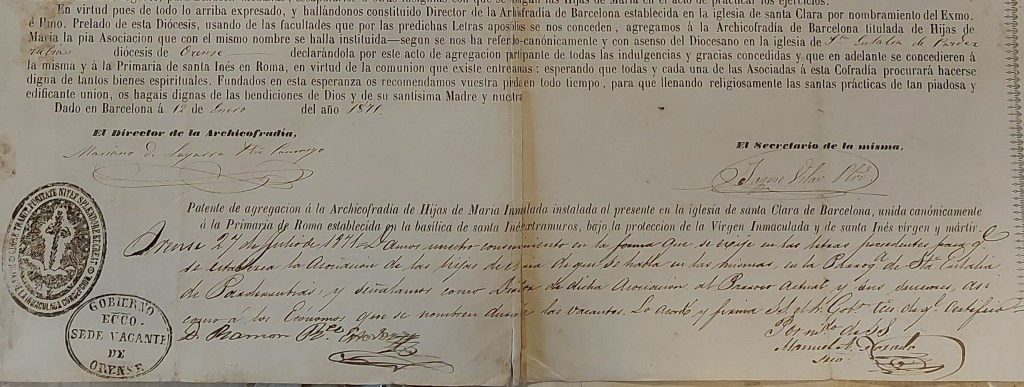 En virtud pues de todo lo arriba expresado, y hallándonos constituido Director de la Archicofradía de Barcelona establecida en la iglesia de santa Clara por nombramiento del Exmo.
é Ilmo. Prelado de esta Diócesis, usando de las facultades que por las predichas Letras apos se nos conceden, agregamos á la Archicofradía de Barcelona titulada de Hijas de
María la pia Asociacion que con el mismo nombre se halla instituida—segun se nos ha referido—canónicamente y con asenso del Diocesano en la iglesia de Sta Eulalia de
diócesis de Orense declarándola por este acto de agregacion participante de todas las indulgencias y gracias concedidas y que en adelante se concedieren á
la misma y á la Primaria de santa Inés en Roma, en virtud de la comunion que existe entre : esperando que todas y cada una de las Asociadas á esta Cofradía procurará hacerse
digna de tantos bienes espirituales. Fundados en esta esperanza os recomendamos vuestra en todo tiempo, para que llenando religiosamente las santas prácticas de tan piadosa y
edificante union, os hagais dignas de las bendiciones de Dios y de su santísima Madre y nuestra
Dado en Barcelona á 12 de Enero del año 1871.
El Director de la Archicofradía,
El Secretario de la misma.
Mariano de
Jayme
Patente de agregacion á la Archicofradía de Hijas de María Inmaculada instalada al presente en la iglesia de santa Clara de Barcelona, unida canónicamente
á la Primaria de Roma establecida en la basílica de santa Inés extramuros, bajo la proteccion de la Vírgen Inmaculada y de santa Inés vírgen y mártir.
Orense 27 de Julio de 1871. Damos nuestro consentimiento en la forma que se exije en las letras precedentes para q.e
se establezca la Asociacion de las Hijas de de que se habla en las mismas, en la Parroq.a de Sta Eulalia
de y señalamos como Director de dicha Asociacion al Parroco actual y sus sucesores, asi
como á los Economos que se nombren durante las vacantes. Lo acordó y firma S.S. el Gob.r Ecc.o de q.e certifico
D. Ramon
Por m.do de S.S.
Manuel A. Losada
Srio.
GOBIERNO
ECCO.
SEDE VACANTE
DE
ORENSE